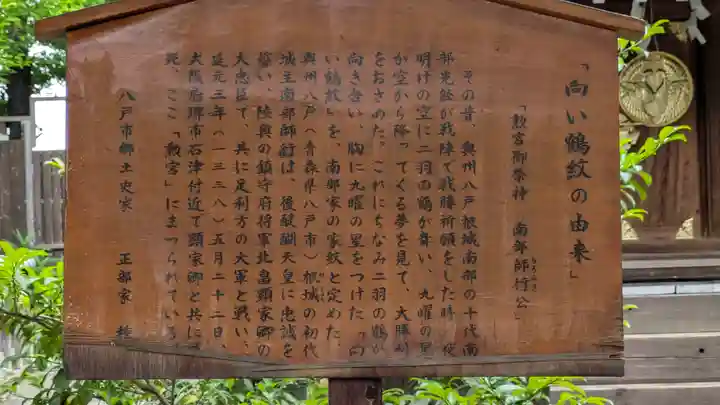 「向い鶴紋の由来」
「勲宮御祭神　南部師行公」
もろゆき
その昔、奥州八戸根城南部の十代南
部光経が戦陣で戦勝祈願をした時、夜
明けの空に二羽の鶴が舞い、九曜の星
が空から降ってくる夢を見て、大勝利
をおさめた。これにちなみ二羽の鶴が
向き合い、胸に九曜の星をつけた「向
い鶴紋」を、南部家の家紋と定めた。
奥州八戸（青森県八戸市）根城の初代
城主南部師行は、後醍醐天皇に忠誠を
誓い、陸奥の鎮守府将軍北畠顕家卿の
大忠臣で、共に足利方の大軍と戦い、
延元三年（一三三八）五月二十二日、
大阪府堺市石津付近で顕家卿と共に
死、ここ「勲宮」にまつられている
八戸市郷土史家　正部家　種